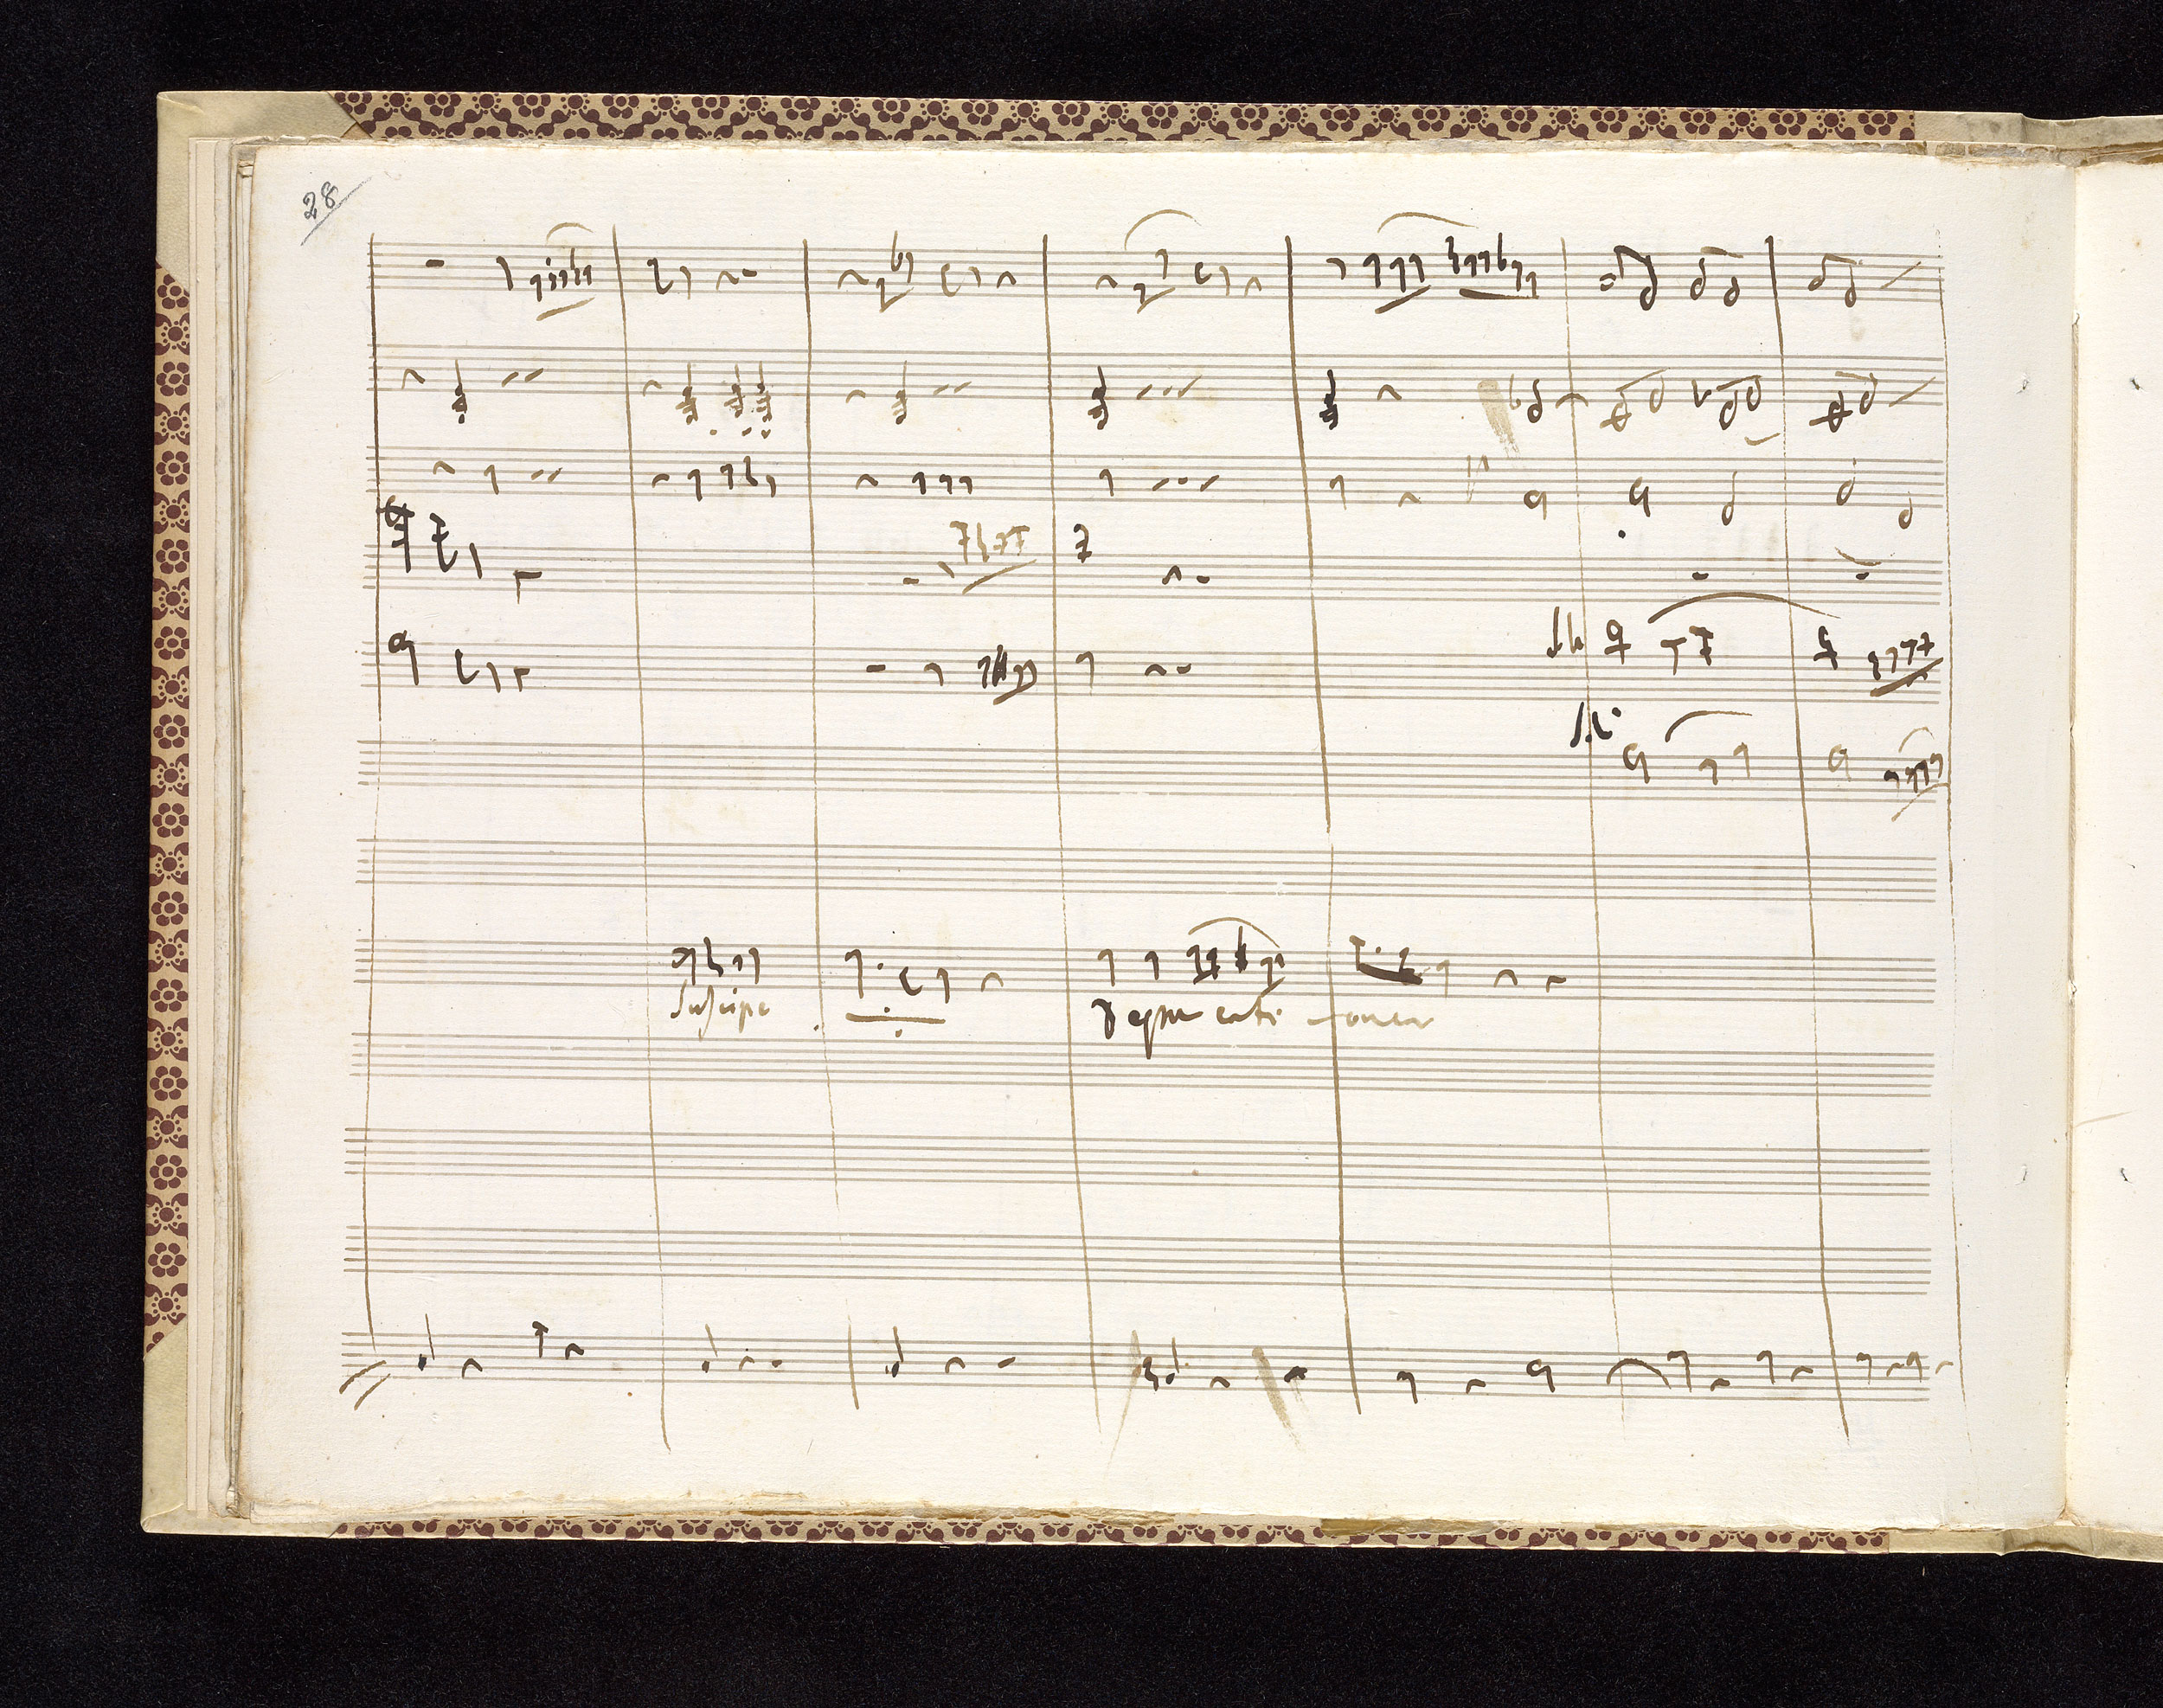 28
Suscipe
Deprecationem